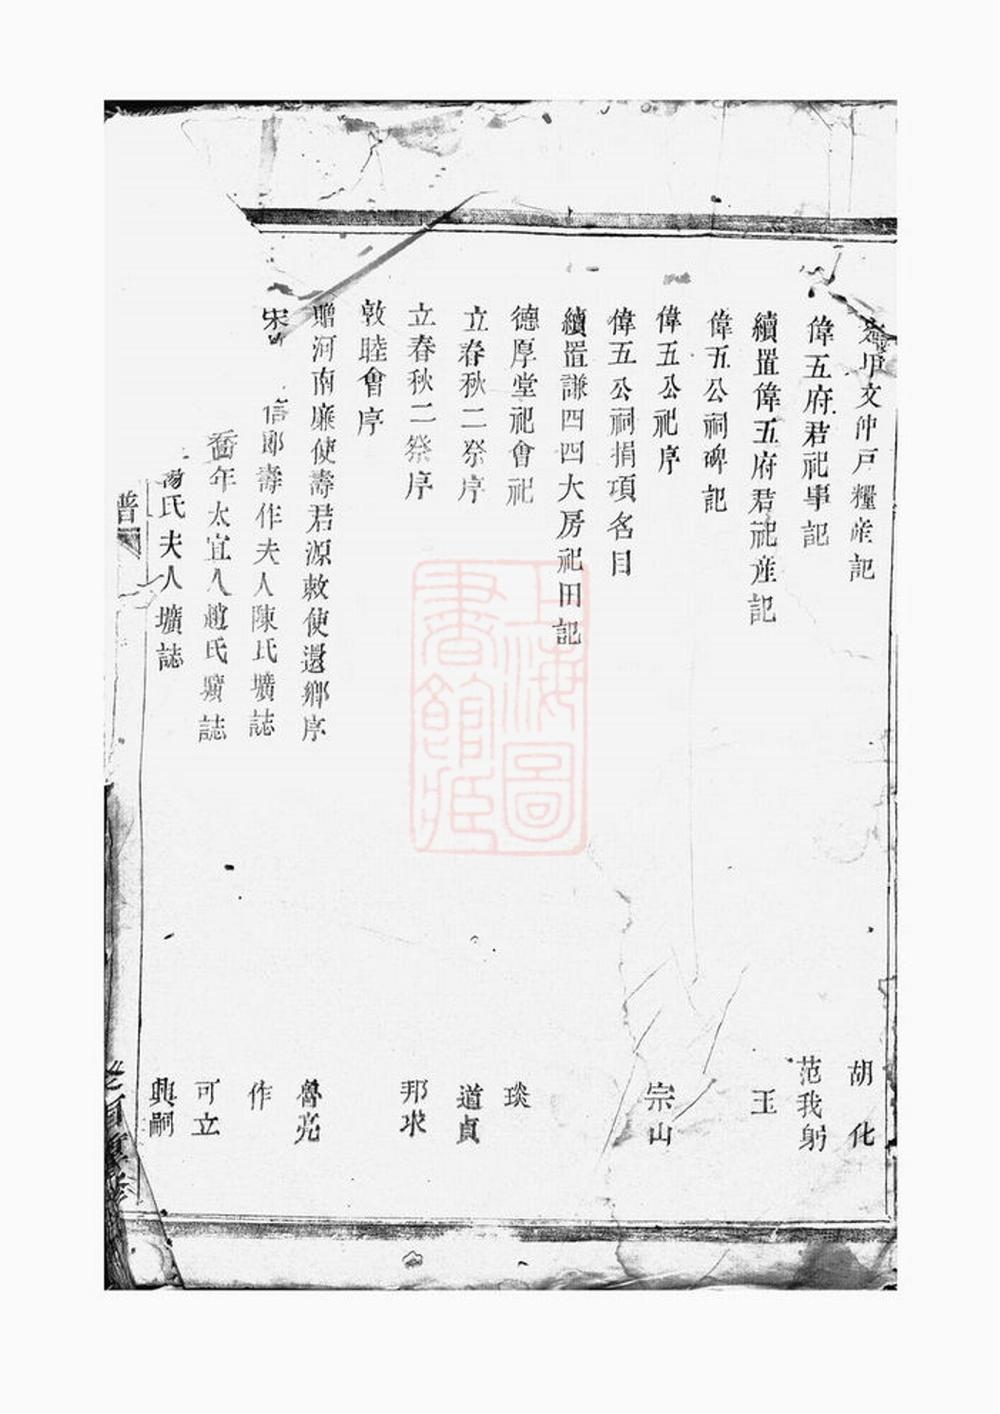 甲文仲戶糧産記 胡化
偉五府君祀事記 范我躬
續置偉五府君祀産記 玉
偉五公祠碑記
偉五公祀序 宗山
偉五公祠捐項名目
續置謙四四大房祀田記
德厚堂祀會祀 琰
立春秋二祭序 道貞
立春秋二祭序 邦求
敦睦會序
贈河南廉使壽君源敕使還鄉序 魯亮
宋 信郎壽作夫人陳氏壙誌 作
年太宜人趙氏壙誌 可立
湯氏夫人壙誌 興嗣
譜
上海圖書館藏